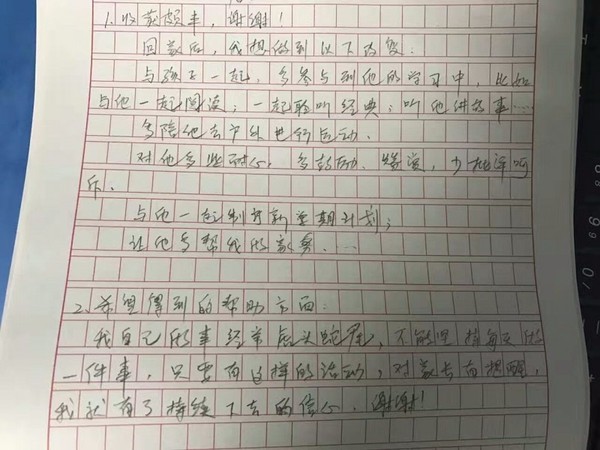 1.收获颇丰，谢谢！
回家后，我想做到以下改变.
与孩子一起，多参与到他的学习中，比如
与他一起阅读；一起聆听经典；听他讲故事……
多陪他去户外进行运动.
对他多些耐心，多鼓励、缓激，少批评呵
斥.
与他一起制订新学期计划；
让他多帮我做家务.……
2、希望得到的帮助方面：
我自己做事经常虎头蛇尾，不能坚持每天做
一件事，只要有这样的活动，对家长有提醒，
我就有了持续下去的信心.谢谢！